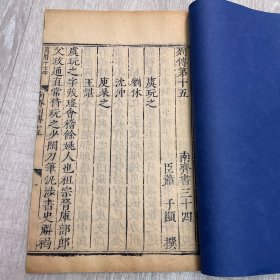 列傳第十五 南齊書三十四
臣蕭 子顯 撰
虞玩之
劉休
沈沖
庾杲之
王諶
虞玩之字茂瑤會稽餘姚人也祖宗晉庫部郎
父玫通直常侍玩之少閑刀筆汎涉書史解褐